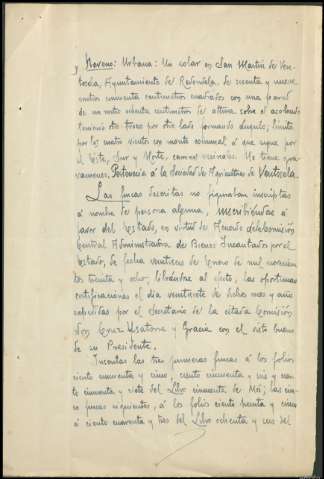 y Noveno: Urbana: Un solar en San Martin de Ven-
tosela, Ayuntamiento de Redondela de cuenta y nueve
metros cincuenta centimetros cuadrados con una pared
de un metro ochenta centimetros de altura sobre el
terreno de por otro lado formando angulo; limita
por los cuatro vientos con monte comunal, á que sigue por
el Este, Sur y Norte, camino vecinales. No tiene gra-
vamenes. Perteneció á la Sociedad de Agricultores de Ventosela.
Las fincas descritas no figuraban inscriptas
á nombre de persona alguna, inscribiéndose á
favor del Estado, en virtud de Acuerdo de la Comisión
Central Administradora de Bienes Incautados por el
Estado, de fecha veintiseis de Enero de mil novecien-
tos treinta y ocho, librandose al efecto, las oportunas
certificaciones el dia veintisiete de dichos mes y año
expedidas por el Secretario de la citada Comisión
Don Cruz Usatorre y Gracia con el visto bueno
de su Presidente.
Inscritas las tres primeras fincas á los folios
ciento cincuenta y cinco, ciento cincuenta y seis y ciento
cincuenta y siete del Libro cincuenta de Mos, las cin-
co fincas siguientes, á los folios ciento treinta y cinco
á ciento cuarenta y tres del Libro ochenta y uno del